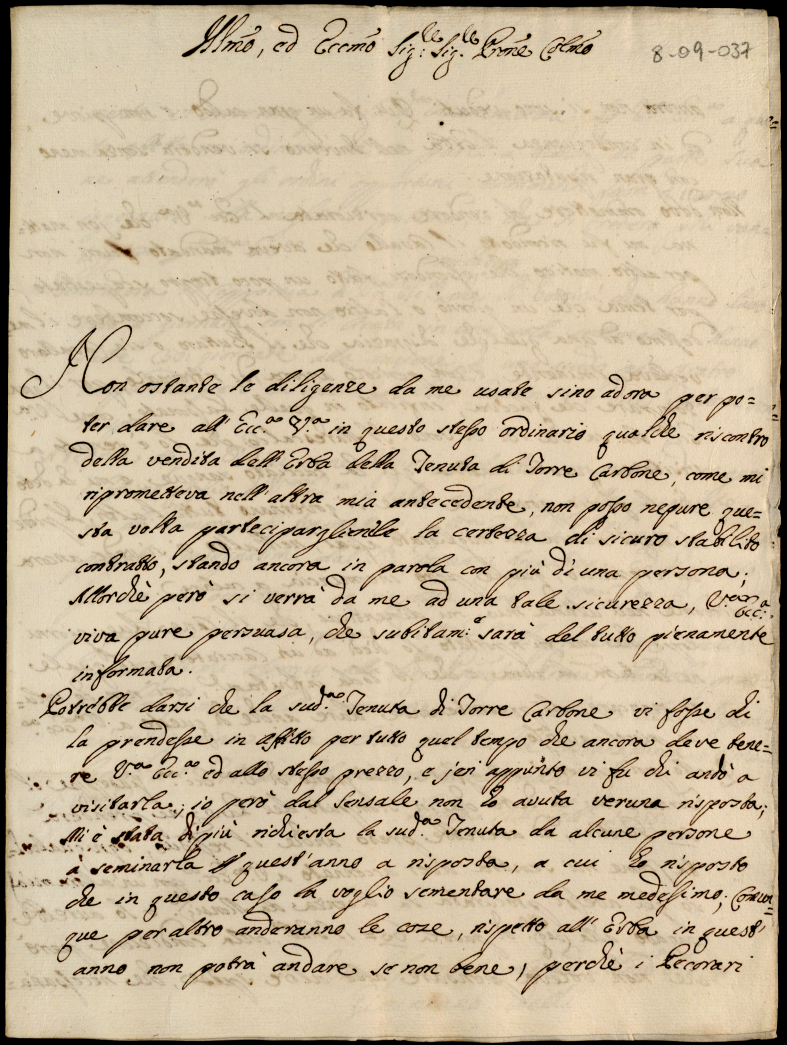 Illmo, ed Eccmo Sig:re Sig:re Prne Colmo
8-09-037
Non ostante le diligenze da me usate sino adora per po=
ter dare all' Ecc.za V.ra in questo stesso ordinario qualche riscontro
della vendita dell' Erba della Tenuta di Torre Carbone, come mi
riprometteva nell' altra mia antecedente, non posso nepure que=
sta volta parteciparglienle la certezza di sicuro stabilito
contratto, stando ancora in parola con più di una persona;
Allorchè però si verrà da me ad una tale sicurezza, V.ra Ecc:za
viva pure persuasa, che subitam:e sarà del tutto pienamente
informata.
Potrebbe darsi che la sud.a Tenuta di Torre Carbone vi fosse chi
la prendesse in affitto per tutto quel tempo che ancora deve tene=
re V.ra Ecc.za ed allo stesso prezzo, e jeri appunto vi fu chi andò a
visitarla; io però dal sensale non hò avuta veruna risposta;
Mi è stata di più richiesta la sud.a Tenuta da alcune persone
à seminarla quest' anno a risposta, a cui hò risposto
che in questo caso la voglio sementare da me medesimo; Comun=
que per altro anderanno le cose, rispetto all' Erba in quest'
anno non potrà andare se non bene, perchè i Pecorari